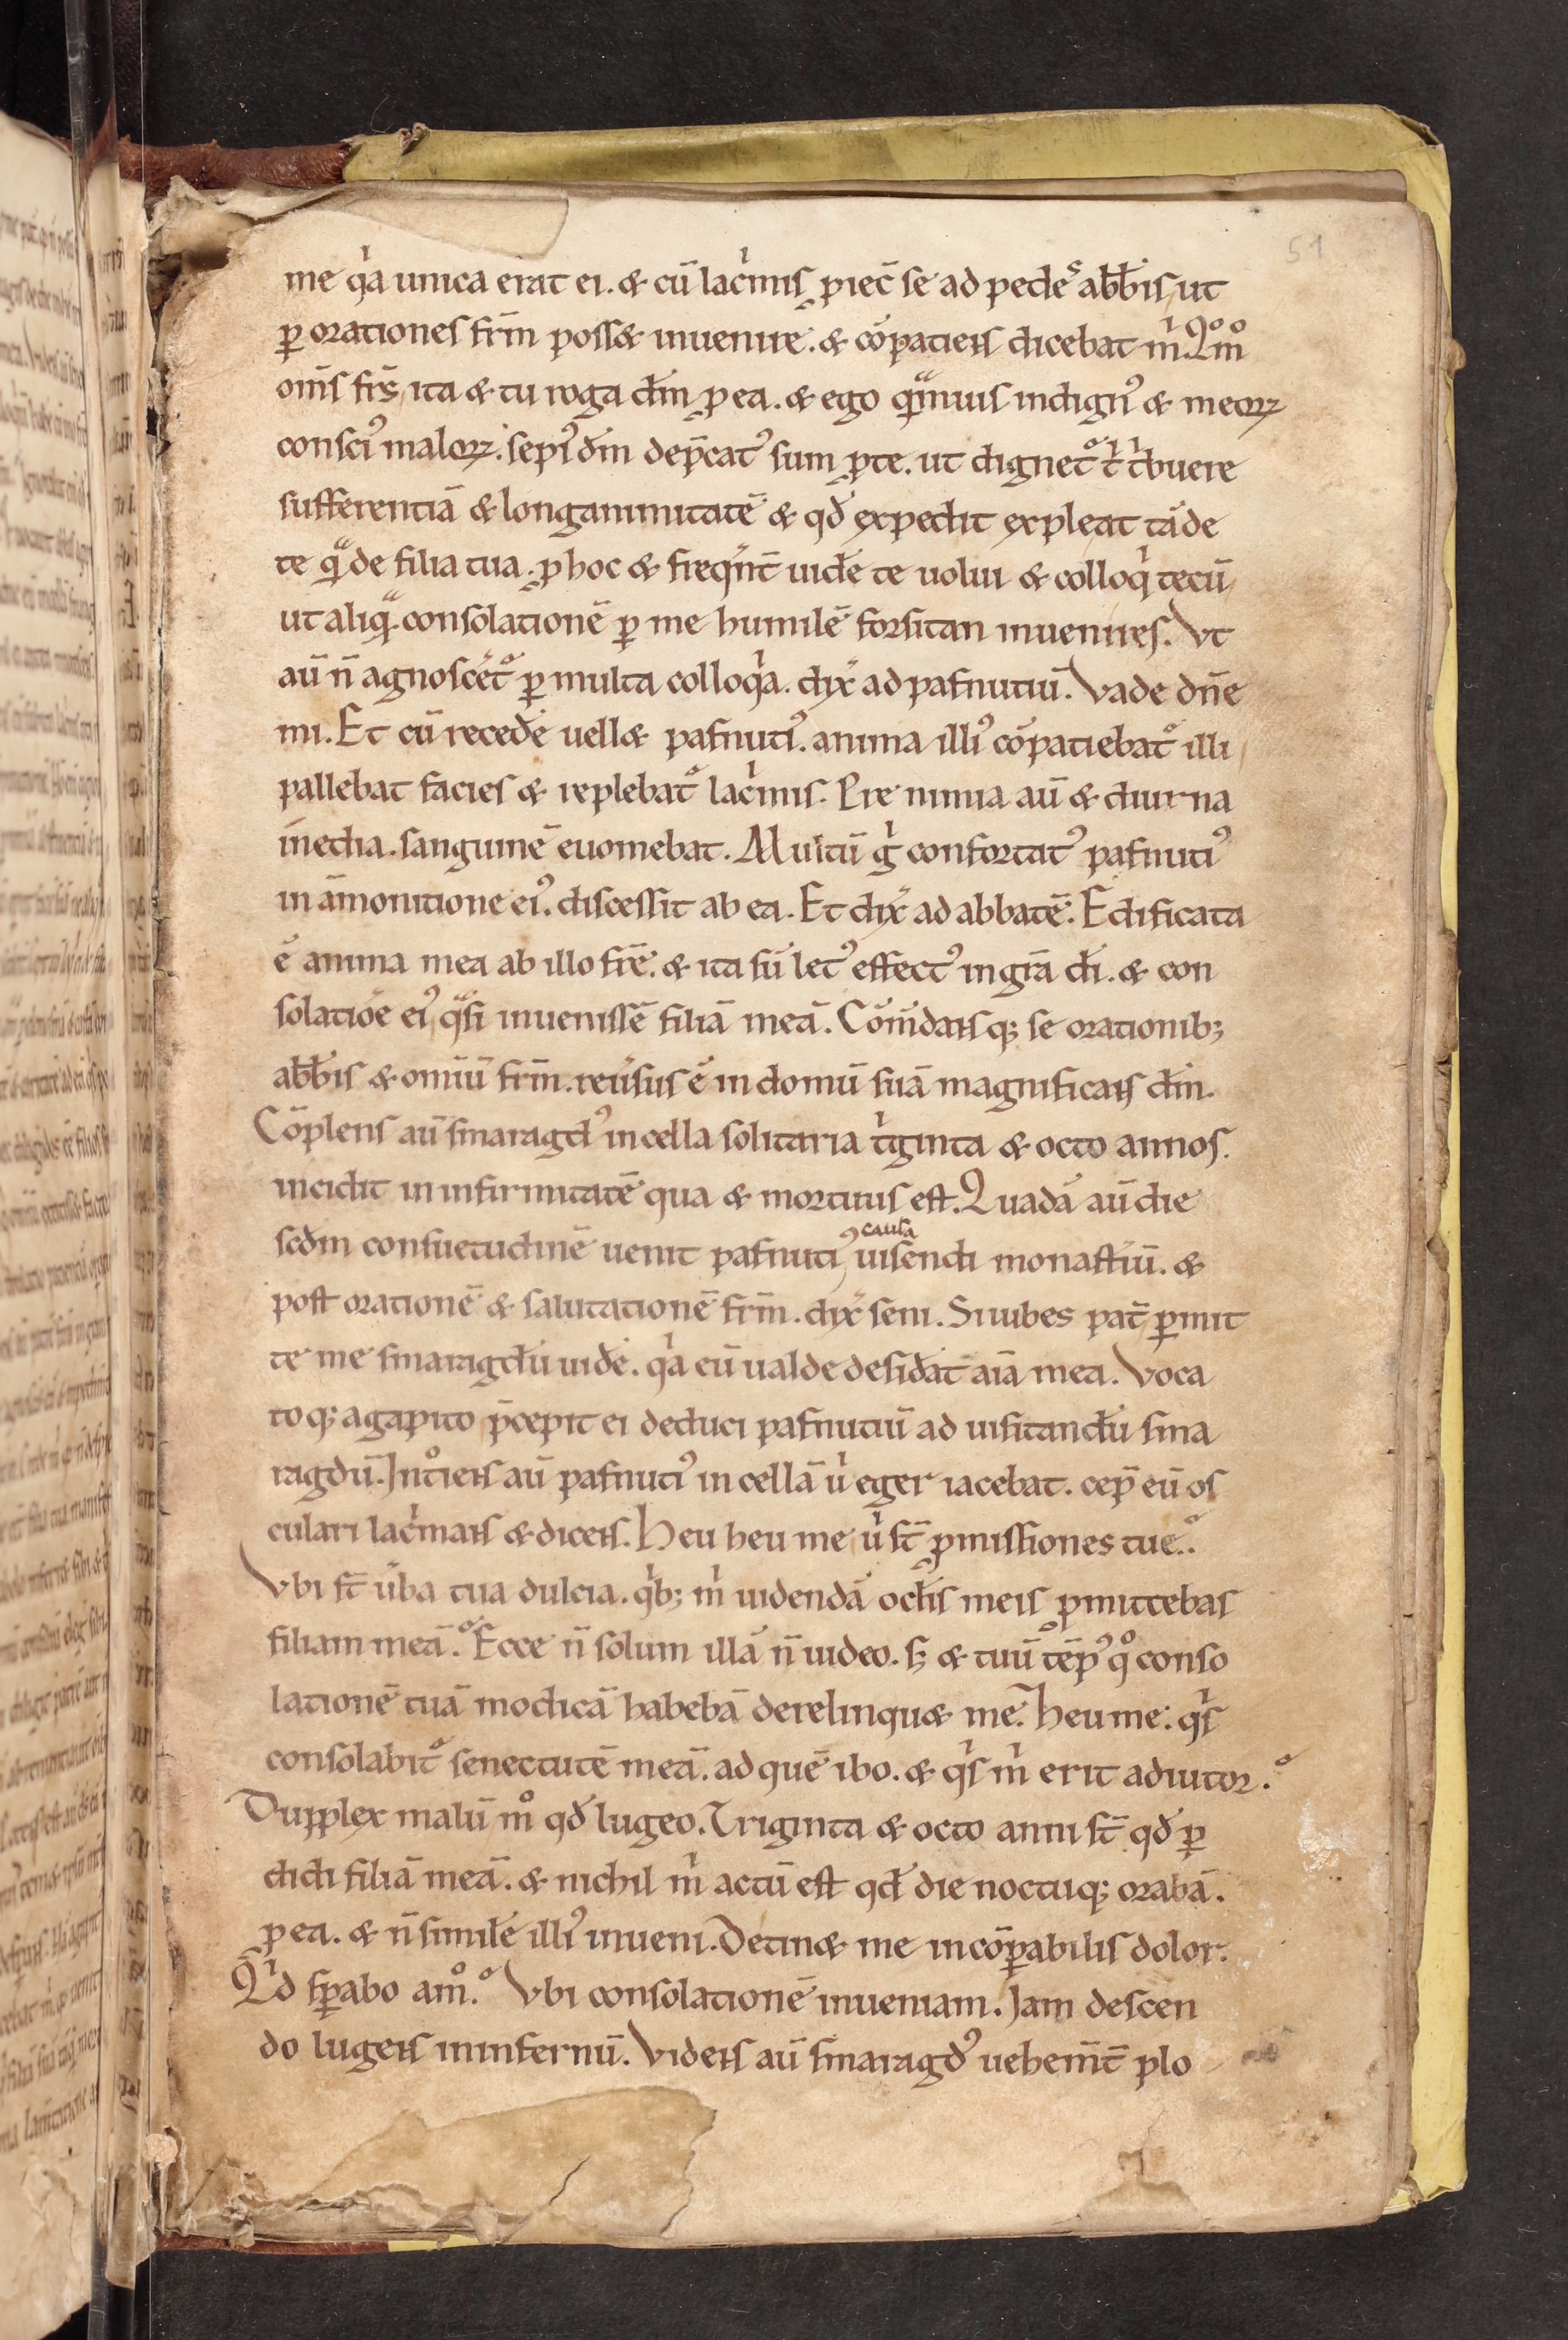 51
me qͥa unica erat ei. & cū lacͥmis ꝓiec̄ se ad pedes abb̄is, ut
ꝑ orationes fr̄m poss& inuenire. & cōpatiens dicebat mͥ. Qͦmͦ
om̄s fr̄s, ita & tu roga dm̄ ꝓ ea. & ego qͣmuis indignꝰ & meoꝝ
consciꝰ maloꝝ. sepiꝰ dm̄ dep̄catꝰ sum ꝓ te. ut dignet᷑ tͥ tͥbuere
sufferentiā & longanimitatē & qd̄ expedit expleat tā de
te qͣ de filia tua. ꝓ hoc & freq̄nt̄ uidēe te uolui & colloqͥ tecū,
ut aliqͣ consolationē ꝑ me humilē forsitan inuenires. Vt
aū n̄ agnoscet᷑ ꝑ multa colloqͥa. dix̄ ad pafnutiū. Vade dn̄e
mi. Et cū recedēe uell& pafnutiꝰ. anima illiꝰ cōpatiebat᷑ illi,
pallebat facies & replebat᷑ lacͥmis. Pre nimia aū & diurna
inedia. sanguinē euomebat. Multū gͥ confortatꝰ pafnutiꝰ
in āmonitione eiꝰ. discessit ab ea. Et dix̄ ad abbatē. Edificata
ē anima mea ab illo fr̄e. & ita sū letꝰ effectꝰ in gr̄a dī. & con
solatiōe eiꝰ, qͣsi inuenissē filiā meā. Cōm̄dansq; se orationib;
abb̄is & omniū fr̄m. reūsus ē in domū suā magnificans dm̄.
Cōplens aū smaragdꝰ in cella solitaria tͥginta & octo annos.
incidit in infirmitatē qua & mortuus est. Quadā aū die
scd̄m consuetudinē uenit pafnutiꝰ causa uisendi monast̄iū. &
post orationē & salutationē fr̄m. dix̄ seni. Si iubes pat̄ ꝑmit
te me smaragdū uidēe. qͥa eū ualde desid̄at aīa mea. Voca
toq; agapito p̄cepit ei deduci pafnutiū ad uisitandū sma
ragdū. Intͦiens aū pafnutiꝰ in cellā uͥ eger iacebat. cep̄ eū os
culari lacͥmans & dicens. Heu heu me, uͥ st̄ ꝓmissiones tue.
Vbi st̄ ūba tua dulcia. qͥb; mͥ uidendā oclis meis ꝓmittebas
filiam meā. Ecce n̄ solum illā n̄ uideo. s; & tuū tēpꝰ qͦ conso
lationē tuā modicā habebā derelinqu& me. Heu me. qͥs
consolabit᷑ senectutē meā. ad quē ibo. & qͥs mͥ erit adiutor.
Dupplex malū mͦ qd̄ lugeo. Triginta & octo anni st̄ qd̄ ꝑ
didi filiā meā. & nichil mͥ actū est qd̄ die noctuq; orabā.
ꝓ ea. & n̄ similē illiꝰ inueni. Detin& me incōꝑabilis dolor.
Qͥd sꝑabo amͦ. Vbi consolationē inueniam. Jam descen
do lugens in infernū. Videns aū smaragdꝰ uehem̄t̄ plo